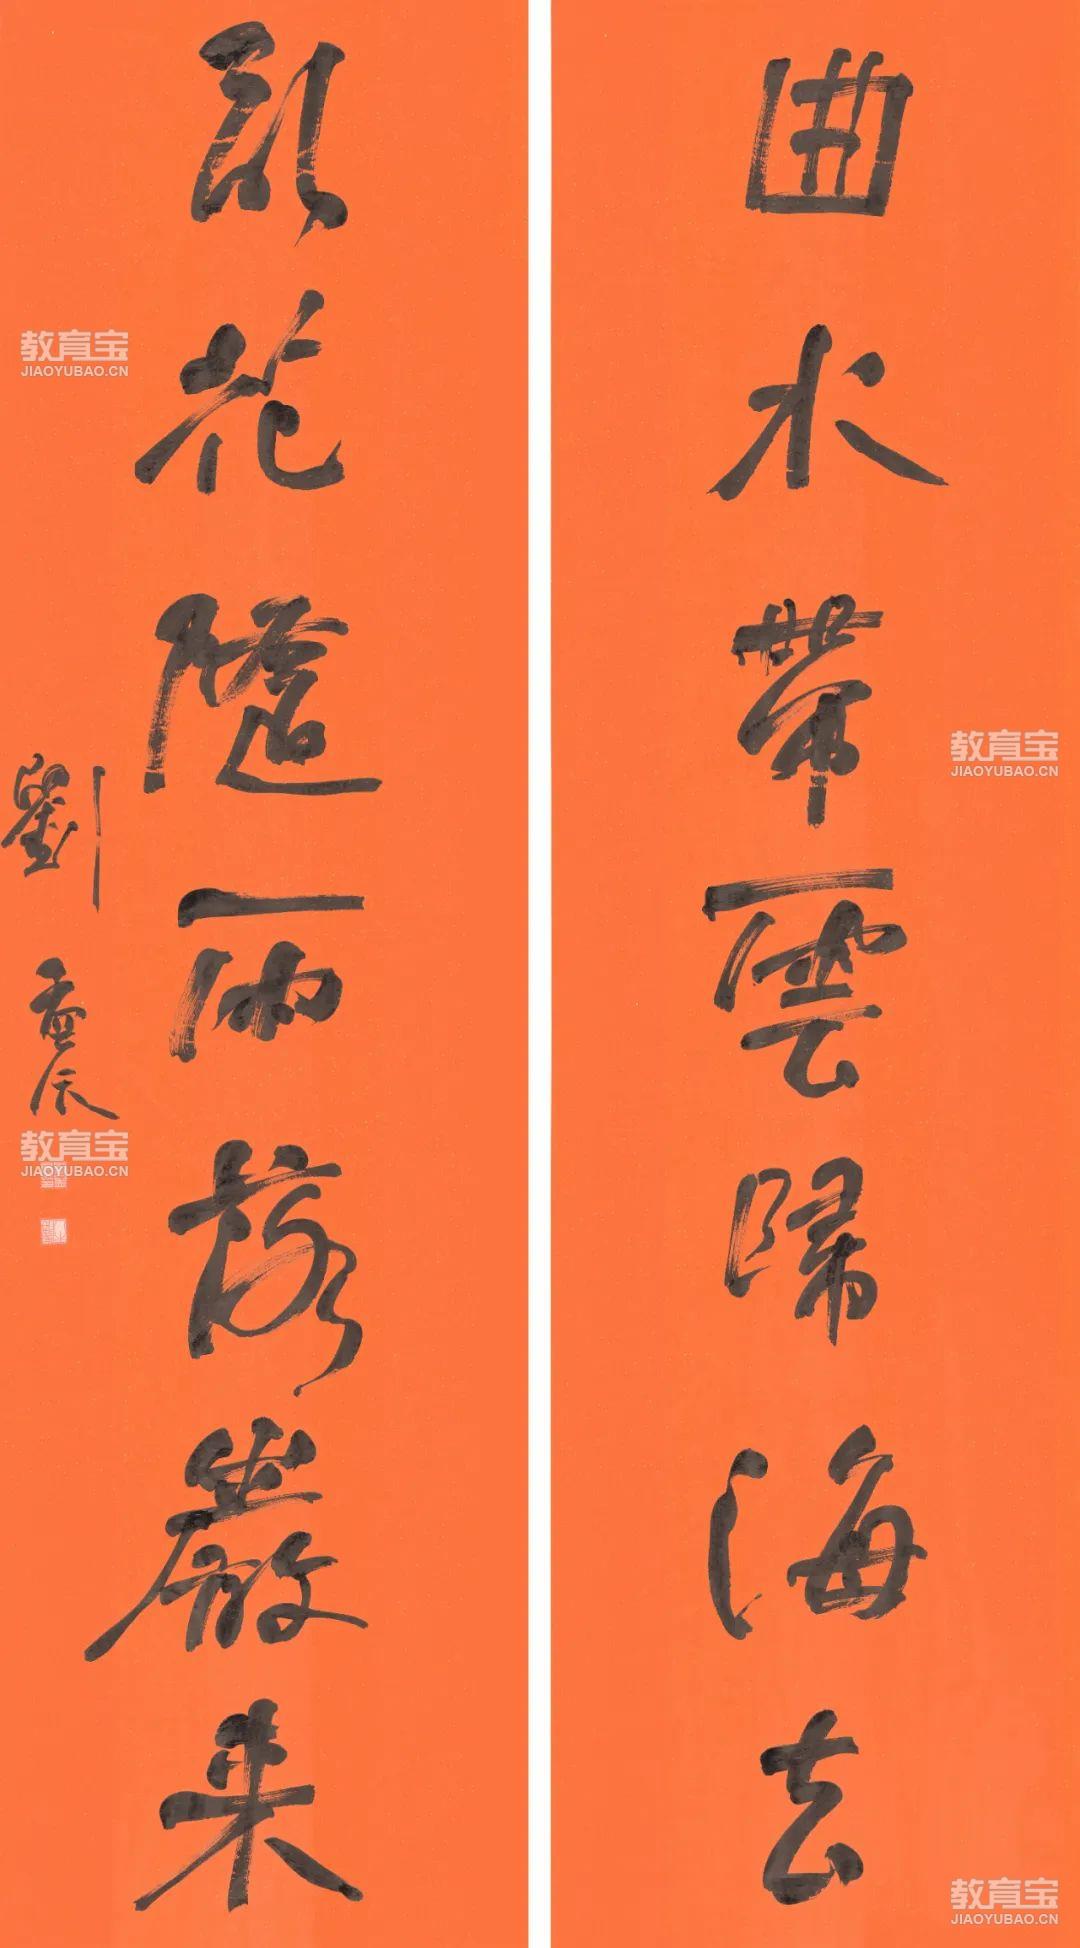 曲水帶雲歸海去
花隨雨落巖來
劉
教育宝
JIAOYUBAO.CN
教育宝
JIAOYUBAO.CN
教育宝
JIAOYUBAO.CN
教育宝
JIAOYUBAO.CN